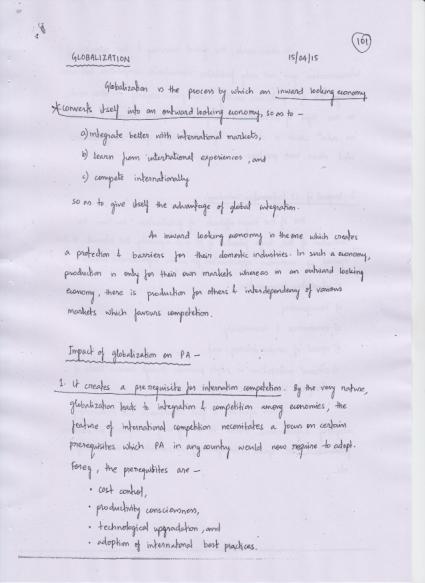 101
GLOBALIZATION 15/04/15
Globalization is the process by which an inward looking economy
*converts itself into an outward looking economy, so as to –
a) integrate better with international markets,
b) learn from international experiences, and
c) compete internationally
so as to give itself the advantage of global integration.
An inward looking economy is the one which creates
a protection & barriers for their domestic industries. In such a economy,
production is only for their own markets whereas in an outward looking
economy, there is production for others & interdependency of various
markets which favours competition.
Impact of globalization on PA –
1. It creates a prerequisite for internation competition. By the very nature,
globalization leads to integration & competition among economies, the
feature of international competition necessitates a focus on certain
prerequisites which PA in any country would now require to adopt.
For eg, the prerequisites are –
• cost control,
• productivity consciousness,
• technological upgradation, and
• adoption of international best practices.